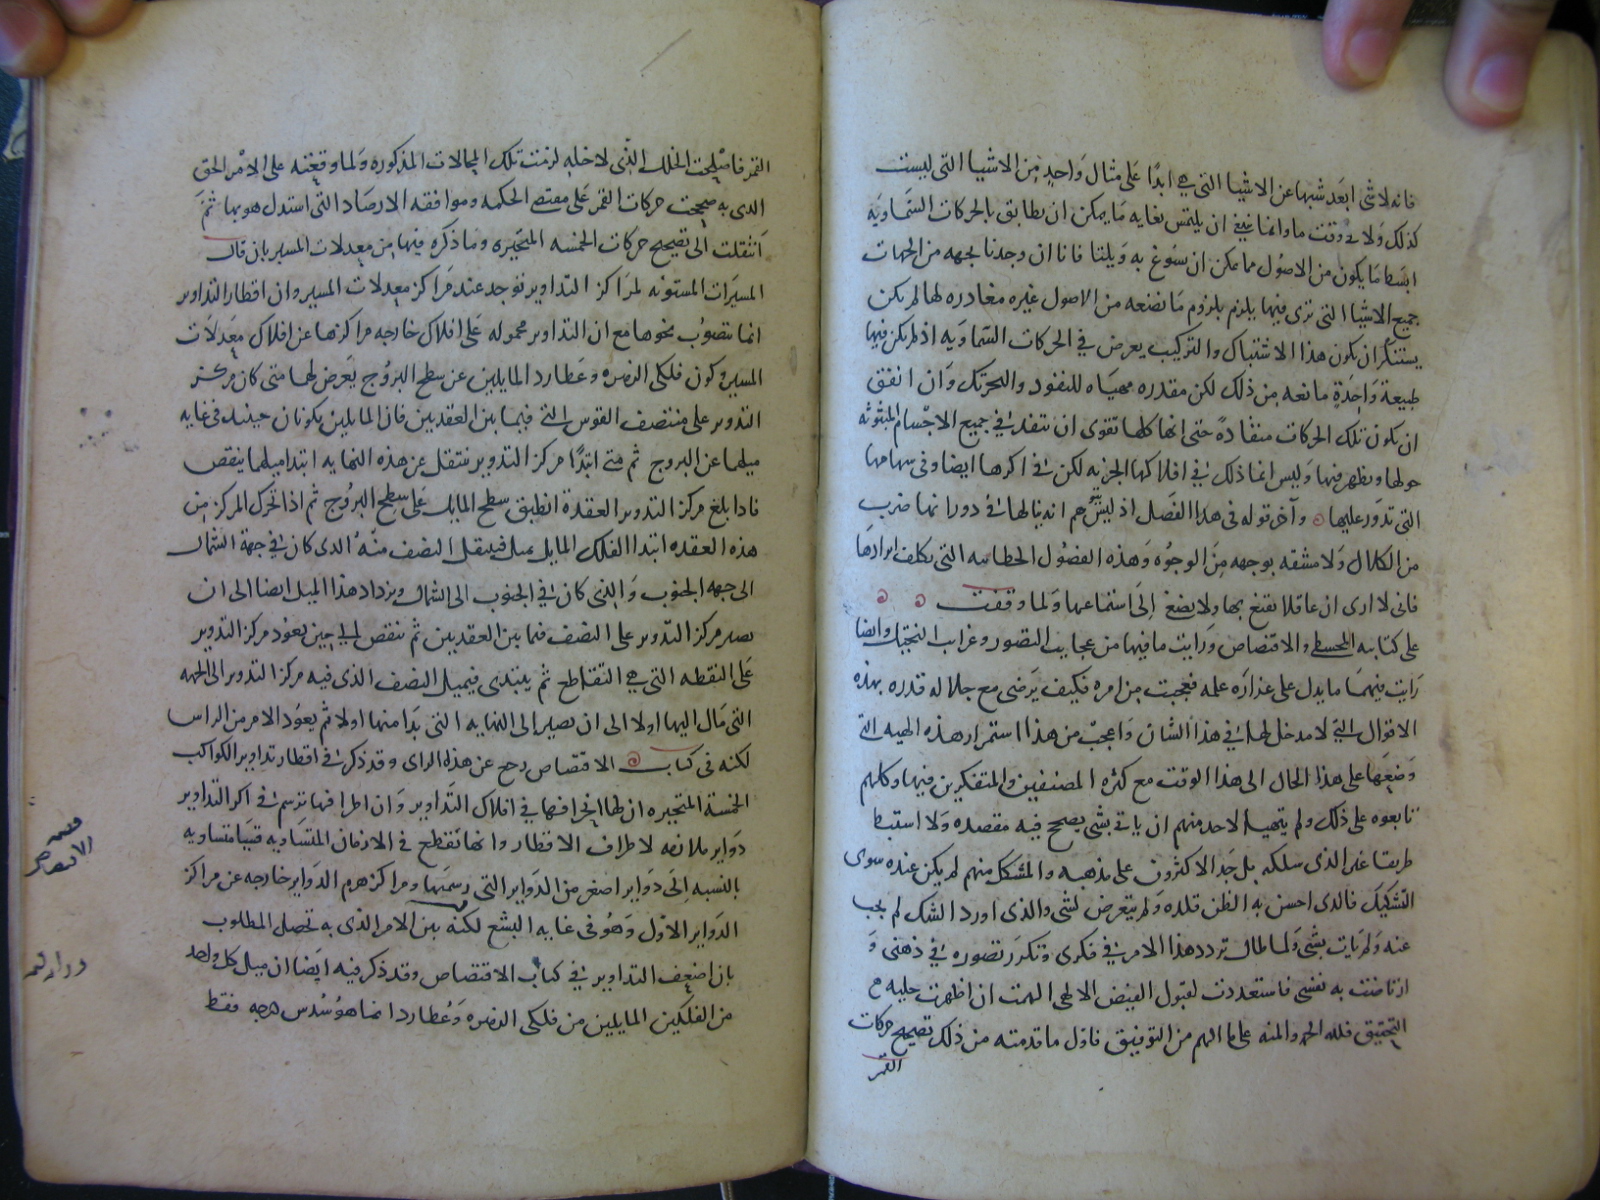 فانه لا شى ابعد شبها عن الاشيا التى هى ابدًا على مثال واحد من الاشيا التى ليست
كذلك ولا فى وقت ما وانما ينبغى ان يلتمس بغايه ما يمكن ان يطابق بالحركات السماويه
ابسط ما يكون من الاصول مما يمكن ان نسوغ به ويلنا فانا ان وجدنا بجهه من الجهات
جميع الاشيا التى ترى فيها يلزم بلزوم ما نضعه من الاصول غيره مغادره لها لم يكن
يستنكر ان يكون هذا الاشتباك والتركيب يعرض فى الحركات السماويه اذ لم تكن فيها
طبيعة واحدة مانعه من ذلك لكن مقدره مهياه للنفود والتحرك وان اتفق
ان يكون تلك الحركات متضادة حتى انها كلها تقوى ان تنفذ فى جميع الاجسام المبثوثه
حولها وتظهر فيها وليس انما ذلك فى افلاكها الجزيه لكن فى اكرها ايضا وفى سهامها
التى تدور عليها وآخر قوله فى هذا الفصل اذ ليس هم انه ينالها فى دورانها ضرب
من الكلال ولا مشقه بوجهه من الوجوه وهذه الفصول الخطابيه التى تكلف ايرادها
فانى لا ارى ان عاقلا يقنع بها ولا يصغ الى استماعها ولما وقفت
على كتابيه المجسطى والاقتصاص ورايت ما فيها من عجايب التصور وغرايب التخيل وايضا
رايت فيهما ما يدل على غزاره علمه فعجبت من امره فكيف يرضى مع جلاله قدره بهذه
الاقوال التى لا مدخل لها فى هذا الشان واعجب من هذا استمرار هذه الهيه التى
وضعها على هذا الحال الى هذا الوقت مع كثره المصنفين والمتفكرين فيها وكلهم
تابعوه على ذلك ولم يتهيا لاحد منهم ان ياتى بشى يصحح فيه مقصده ولا استبط
طريقا غير الذى سلكه بل جد الاكثرون على مذهبه والمشكك منهم لم يكن عنده سوى
التشكيك فالذى احسن به الظن قلده ولم يتعرض لشى والذى اورد الشك لم يجب
عنه ولم يات بشى ولما طال تردد هذا الامر فى فكرى وتكرر تصوره فى ذهنى و
ارتاضت به نفسى فاستعددت لقبول الفيض الالهى الهمت ان اظهرت جليه
التحقيق فلله الحمد والمنه على ما الهم من التوفيق فاول ما قدمته من ذلك تصحيح حركات
القمر
القمر فاصلحت الخلل الذى لاجله لزمت تلك المحالات المذكوره ولما وقعته على الامر الحق
الدى به صححت حركات القمر على مقتضى الحكمه وموافقه الارصاد التى استدل هو بها ثم
انتقلت الى تصحيح حركات الخمسه المتحيره وما ذكره فيها من معدلات المسير بان قال
المسيرات المستويه لمراكز التداوير توجد عند مراكز معدلات المسير وان اقطار التداوير
انما تتصوب نحوها مع ان التداوير محموله على افلاك خارجه مراكزها عن افلاك معدلات
المسير وكون فلكى الزهره وعطارد المايلين عن سطح البروج يعرض لهما متى كان مركز
التدوير على منتصف القوس التى فيما بين العقدتين فان المايلين يكونان حينيذ فى غايه
ميلهما عن البروج ثم متى ابتدا مركز التدوير ينتقل عن هذه النهايه ابتدا ميلهما ينقص
فاذا بلغ مركز التدوير العقدة انطبق سطح المايل على سطح البروج ثم اذا تحرك المركز من
هذه العقده ابتدا الفلك المايل يميل فينتقل النصف منه الدى كان فى جهة الشمال
الى جهه الجنوب والذى كان فى الجنوب الى الشمال ويزداد هذا الميل ايضا الى ان
يصير مركز التدوير على النصف فيما بين العقدتين ثم ينقص الى حين يعود مركز التدوير
على النقطه التى هى التقاطع ثم يبتدى فيميل النصف الذى فيه مركز التدوير الى الجهه
التى مال اليها اولا الى ان يصير الى النهايه التى بدا منها اولا ثم يعود الامر من الراس
لكنه فى كتاب الاقتصاص رجع عن هذه الراى وقد ذكر فى اقطار تداوير الكواكب
الخمسة المتحيره ان لها انحرافها فى افلاك التداوير وان اطرافها ترسم فى اكر التداوير
دواير ملازمه لاطراف الاقطار وانها تقطع فى الازمان المتساويه قسيا متساويه
بالنسبه الى دواير اصغر من الدواير التى رسمتها ومراكز هرم الدواير خارجه عن مراكز
الدواير الاول وهو فى غايه البشع لكنه بين الامر الذى به تحصل المطلوب
بان اضعف التداوير فى كتاب الاقتصاص وقد ذكر فيه ايضا ان ميل كل واحد
من الفلكين المايلين من فلكى الزهره وعطارد انما هو سدس درجه فقط